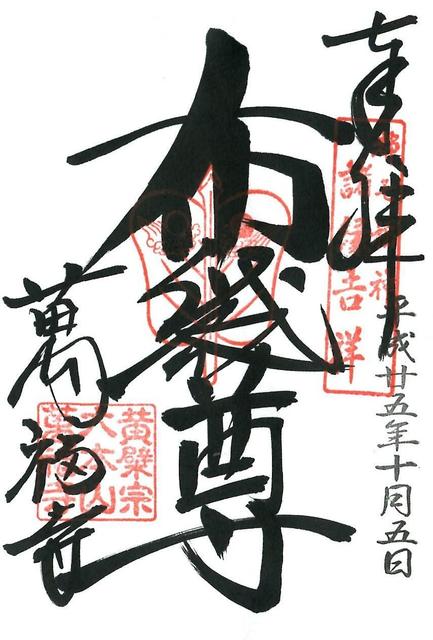 奉拝
平成廿五年十月五日
諸縁吉祥
布袋尊
萬福寺
黄檗宗
大本山
萬福寺